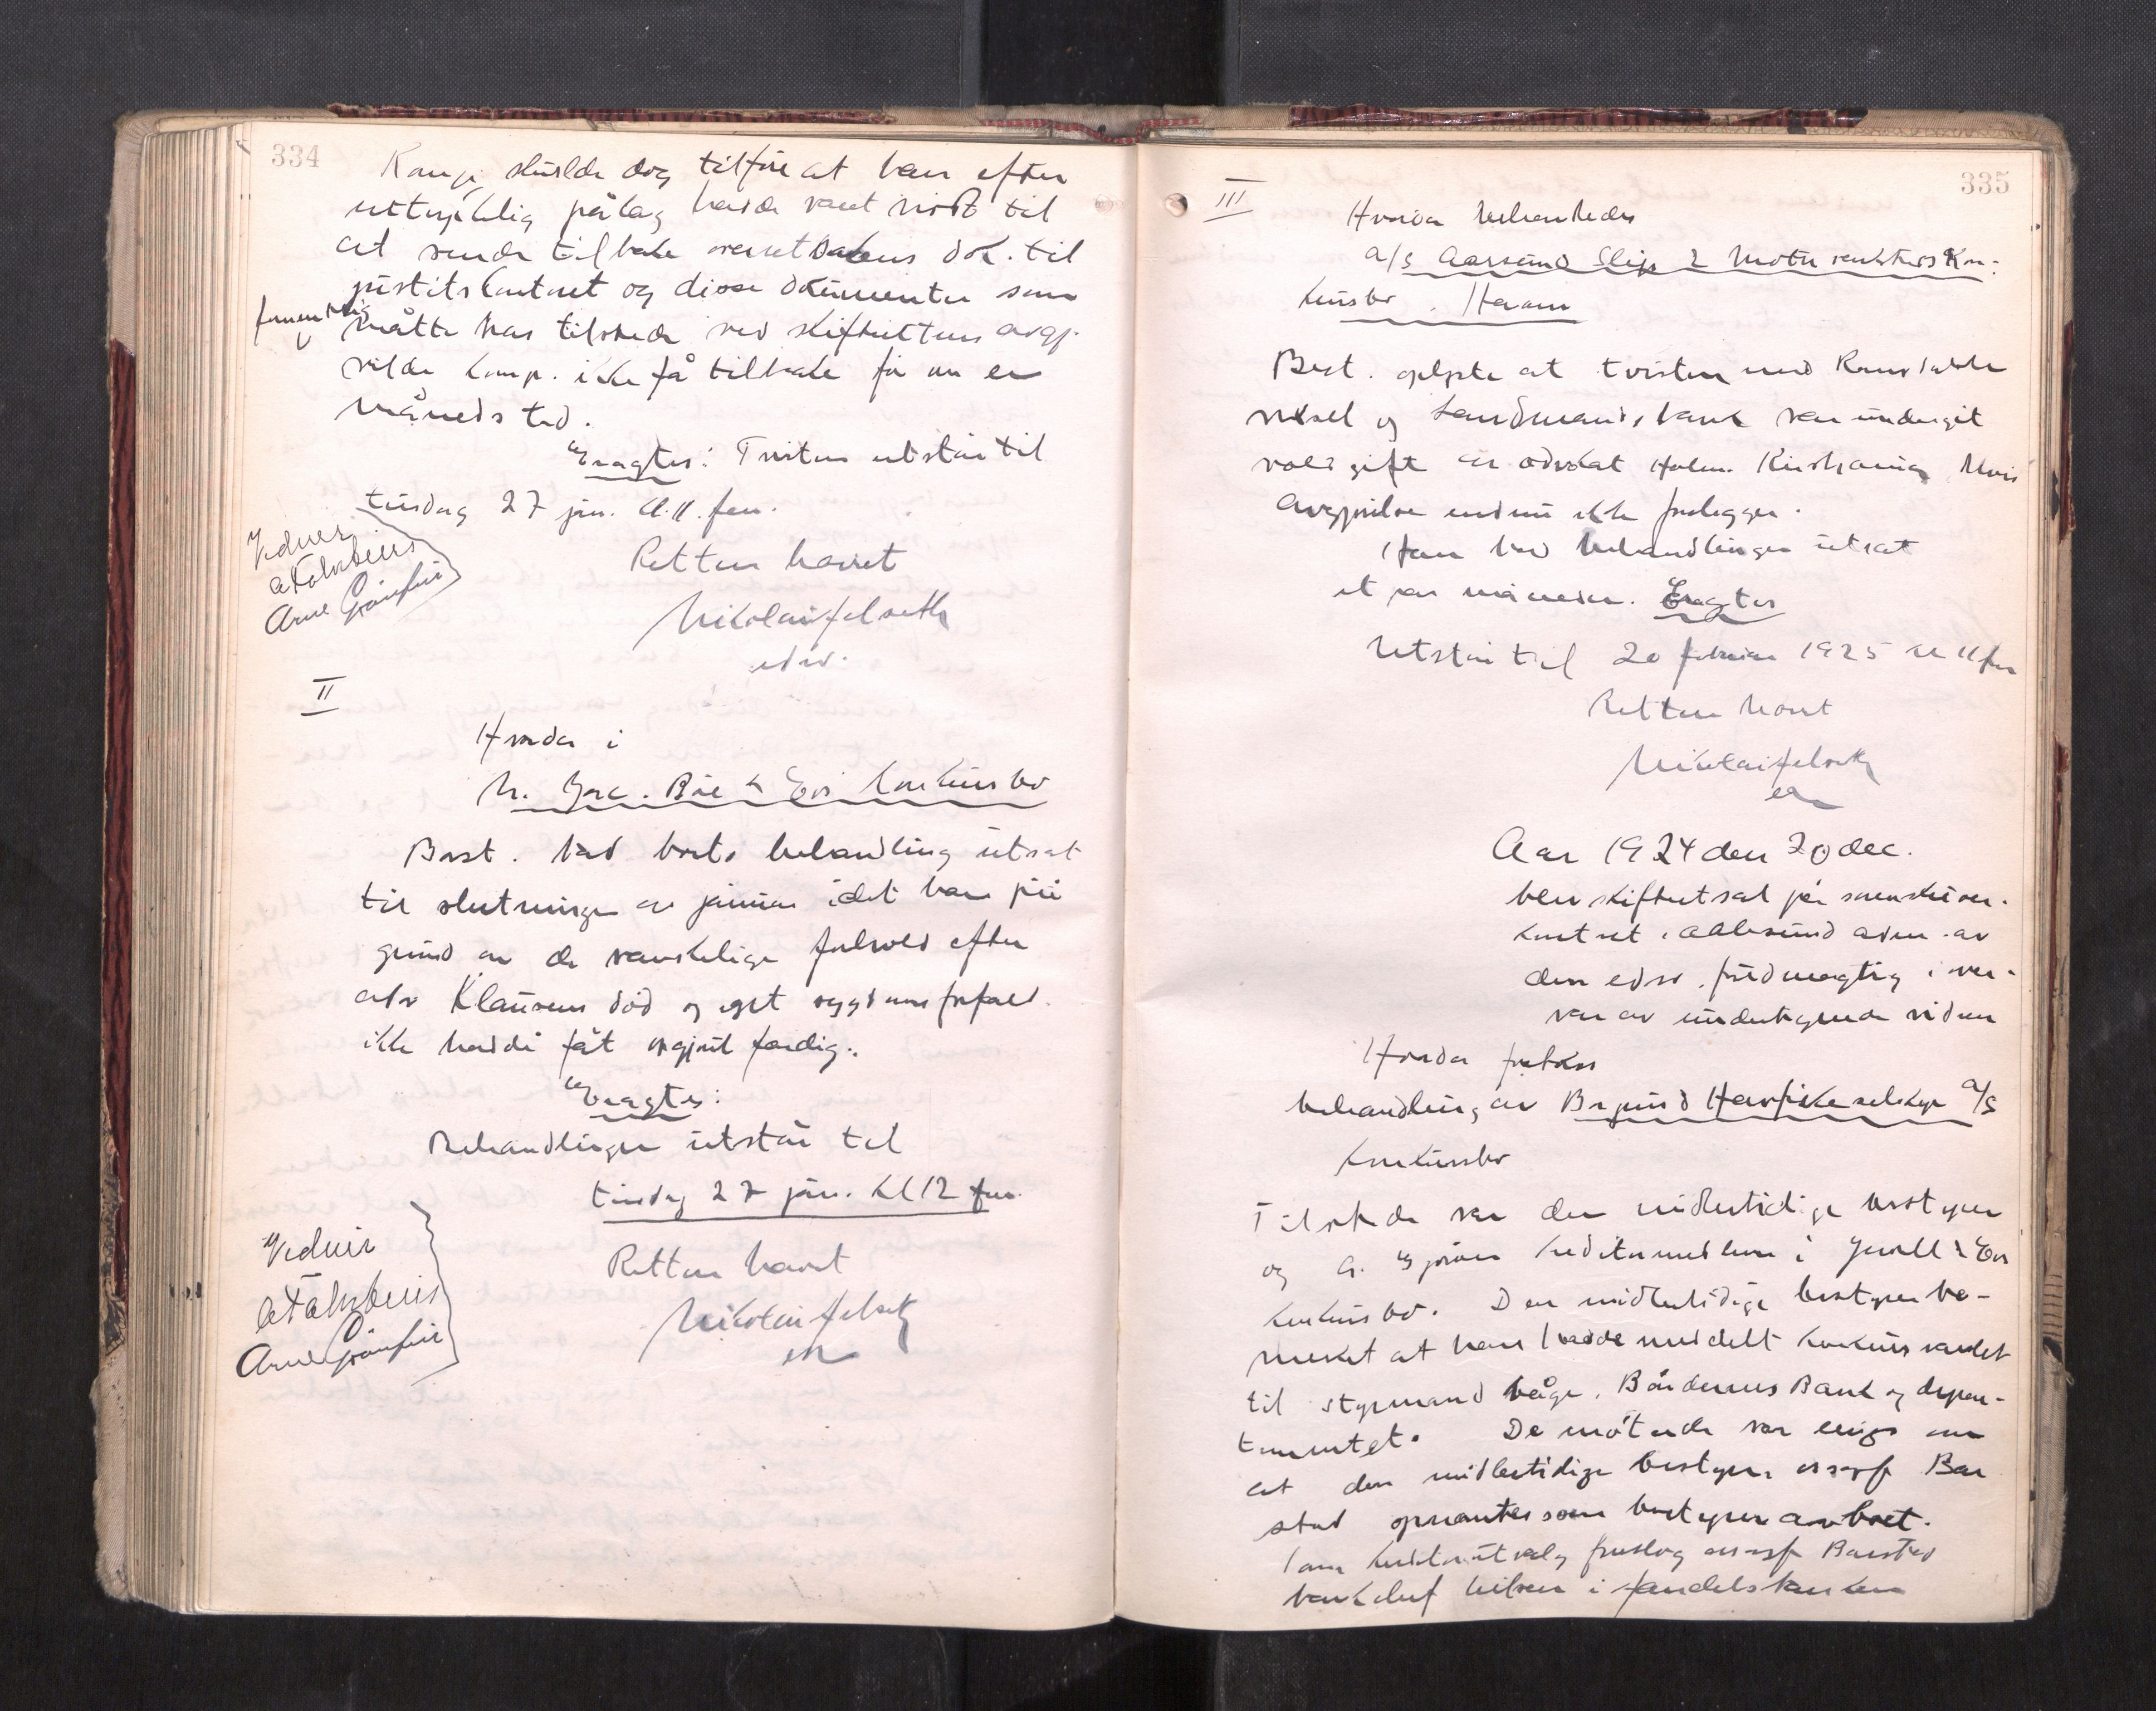 334
Komp. skulde dog tilføie at han efter
uttrykkelig pålag hadde været nødt til
at sende tilbake oversetsakens dok. til
justitskontoret og disse dokumenter som
måtte has tilstede ved skifterettens avgj.
vilde komp. ikke få tilbake før om en
måneds tid.
Eragtes: Tvisten utstår til
tirsdag 27 jan. kl. 11 fm.
Vidner
Retten hævet
Arne
Nikolai Felseth
edsv.
II
Hvorda i
Konkursbo
Best. bad boets behandling utsat
til slutningen av januar idet han på
grund av de vanskelige forhold efter
adv Klausens død og eget sygdomsforfald
ikke hadde fåt opgjøret færdig.
Eragtes:
Behandlingen utstår til
tirsdag 27 jan. kl 12 fm.
Vidner
Retten hævet
Arne
Nikolai Felseth
335
III
Hvorda behandledes
a/s Aarsund Slip & Motorverksteds Kon-
kursbo. Haram
Best. oplyste at tvisten med Romsdals
veksel og Landmandsbank var undergit
voldgift av advokat Holm. Kristiania, hvis
avgjørelse endnu ikke foreligger.
Han bad behandlingen utsat
et par måneder. Eragtes
Utstår til 20 februar 1925 kl 11 fm
Retten hævet
Nikolai Felseth
Aar 1924 den 20 dec.
blev skifteret sat på sorenskriver-
kontoret i Aalesund adm. av
den edsv. fuldmægtig i over-
vær av undertegnede vidner
Hvorda foretokes
behandling av Havfiskeselskap a/s
konkursbo
Tilstede var den midlertidige bestyrer
og kreditormedlem i
konkursbo. Den midlertidige bestyrer be-
merket at han hadde meddelt konkursvarslet
til styrmand Våge, Bøndernes Bank og depar-
tementet. De møtende var enige om
at den midlertidige bestyrer, overrsf Bar
stad opnævntes som bestyrer av boet.
Som kreditorutvalg foreslog overrsf Barstad
bankchef Nilsen i Handelsbanken